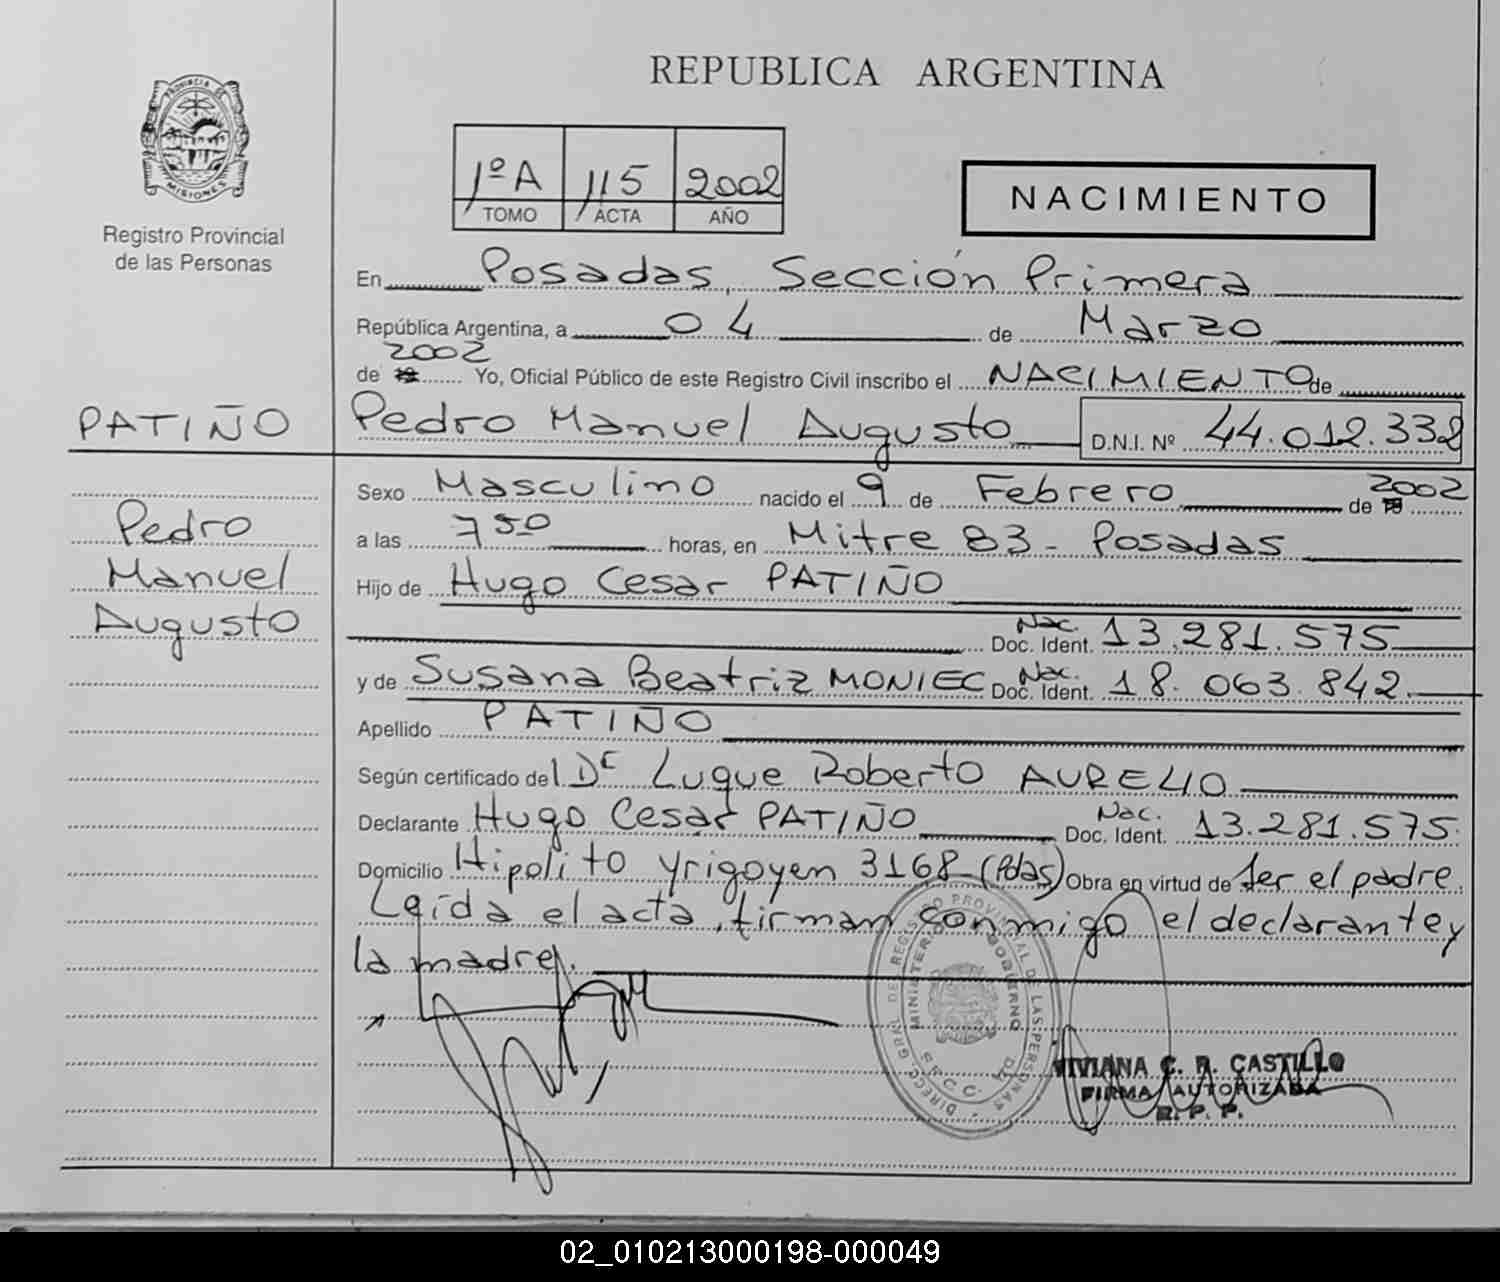 REPUBLICA ARGENTINA
PROVINCIA DE
MISIONES
Registro Provincial
de las Personas
1º A 115 2002
TOMO ACTA AÑO
NACIMIENTO
En Posadas, Sección Primera
República Argentina, a 04 de Marzo
2002
de Yo, Oficial Público de este Registro Civil inscribo el NACIMIENTO de
PATIÑO
Pedro Manuel Augusto D.N.I. Nº 44.012.332
Sexo Masculino nacido el 9 de Febrero de 2002
Pedro
Manuel
Augusto
a las 7 50 horas, en Mitre 83 - Posadas
Hijo de Hugo Cesar PATIÑO
Nac.
Doc. Ident. 13.281.575
y de Susana Beatriz MONIEC Nac. Doc. Ident. 18.063.842
Apellido PATIÑO
Según certificado del Dr Luque Roberto AURELIO
Declarante Hugo Cesar PATIÑO Nac. Doc. Ident. 13.281.575
Domicilio Hipolito Yrigoyen 3168 (Pdas) Obra en virtud de ser el padre.
Leída el acta, firman conmigo el declarante y
la madre.
DIRECC. GRAL. DEL REGISTRO PROVINCIAL DE LAS PERSONAS
MINISTERIO DE GOBIERNO
VIVIANA C. R. CASTILLO
FIRMA AUTORIZADA
R. P. P.
02_010213000198-000049